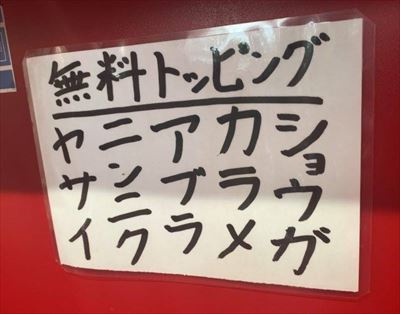 無料トッピング
ヤサイ
ニンニク
アブラ
カラメ
ショウガ